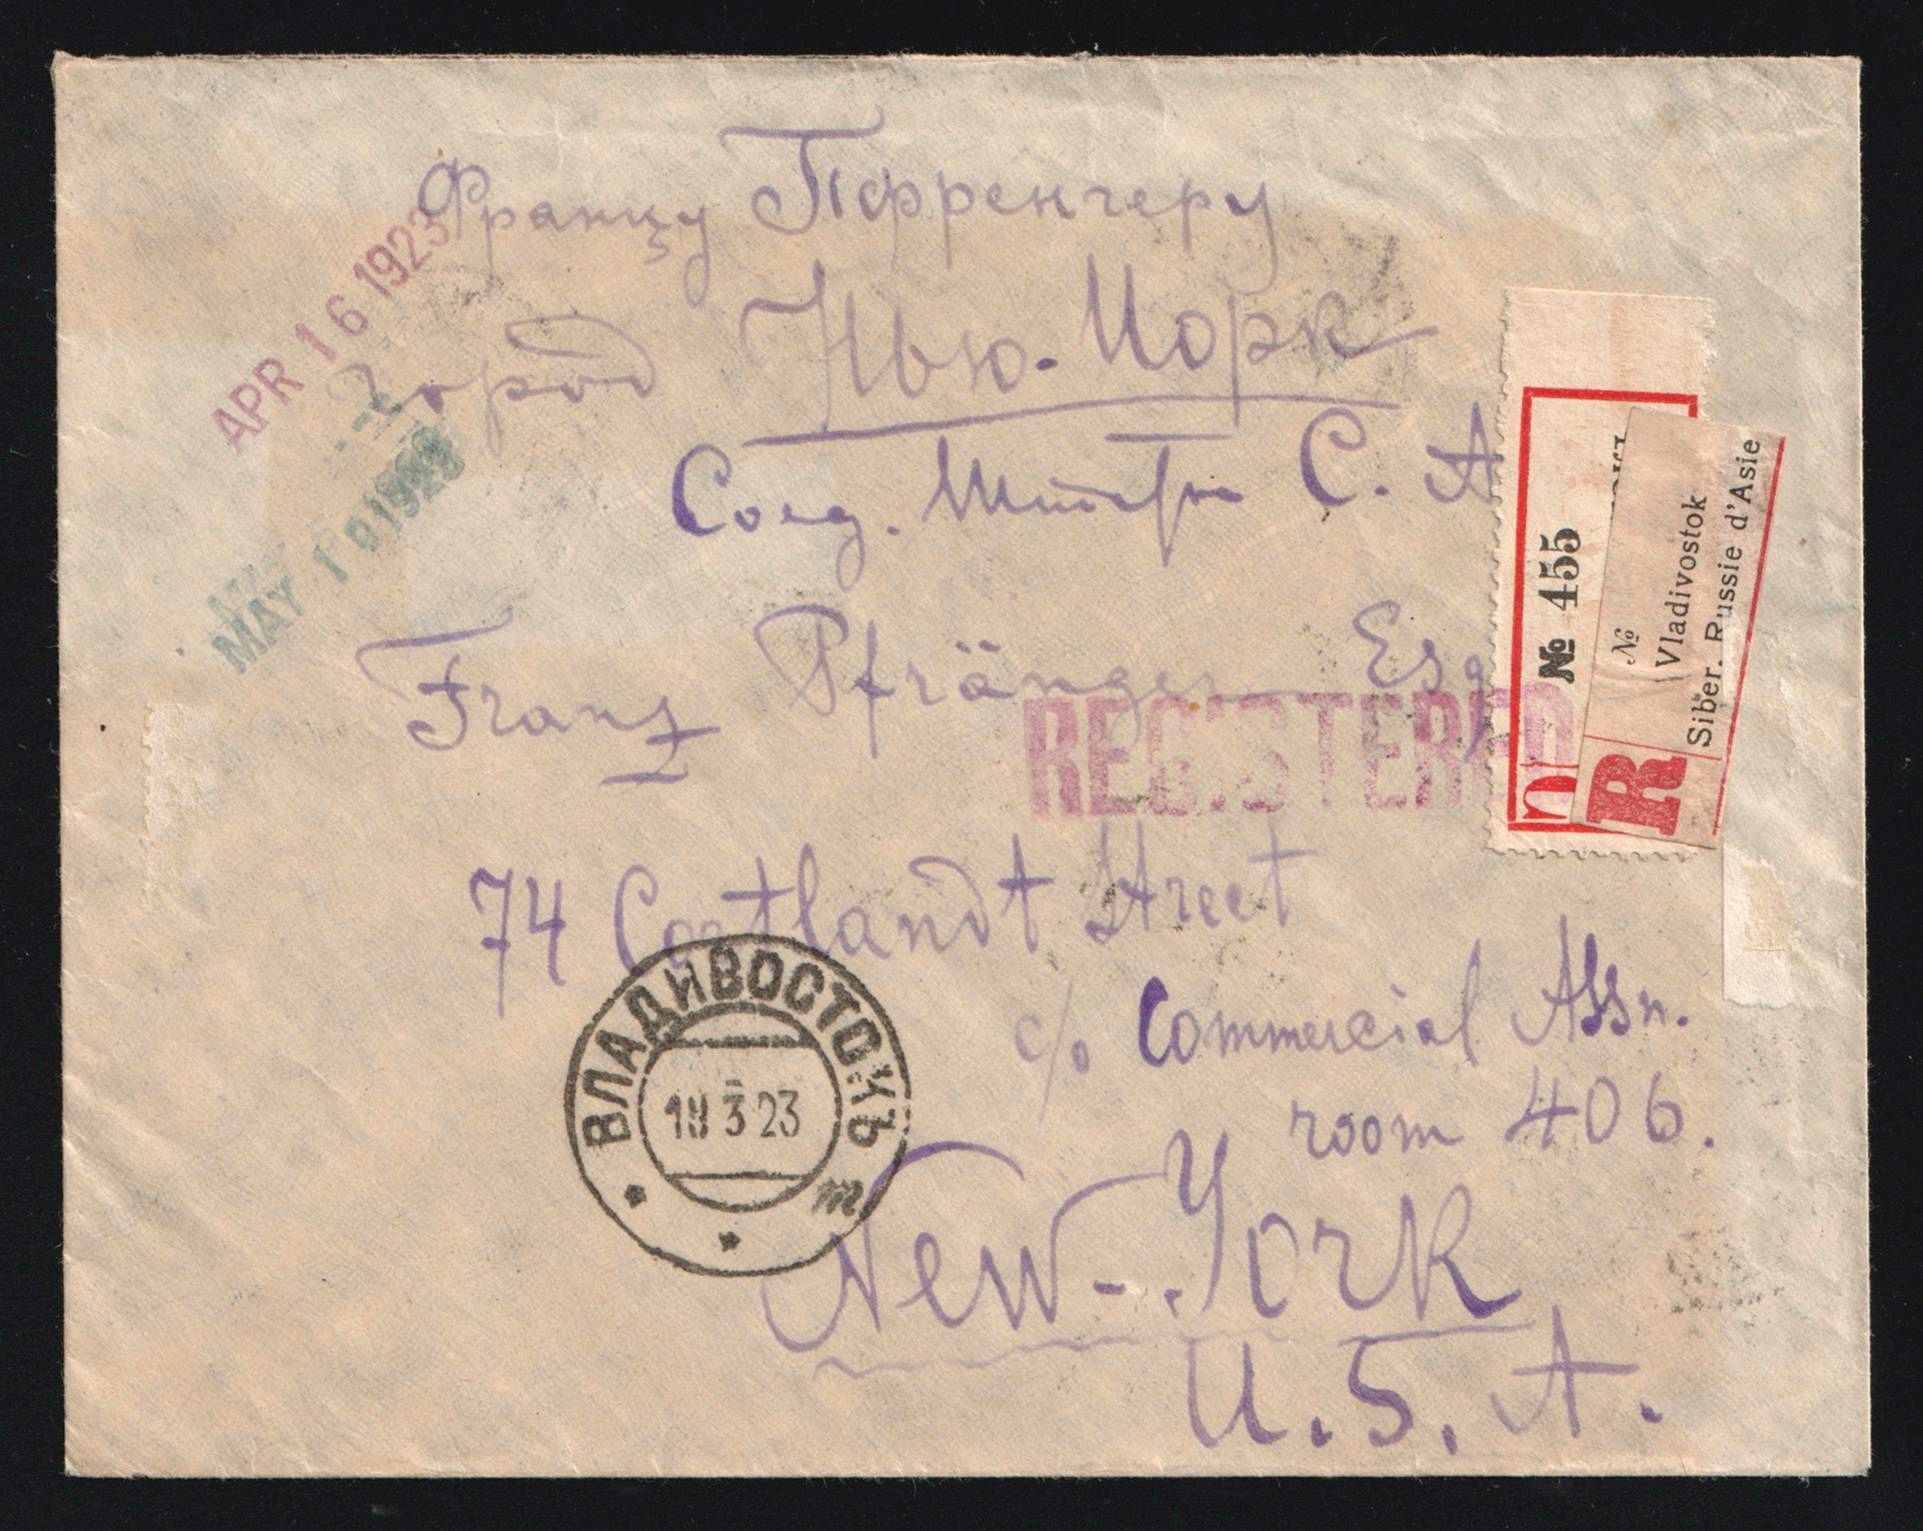 Францу Пфренгеру
APR 16 1923
город Нью-Иорк
Соед. Штаты С. А
MAY 1 0 1923
Franz Pfränger Esq
REGISTERED
№ 455
R
№
Vladivostok
Siber. Russie d'Asie
74 Cortlandt Street
c/o Commercial Assn.
room 406.
ВЛАДИВОСТОКЪ
19 3 23
New-York
U.S.A.